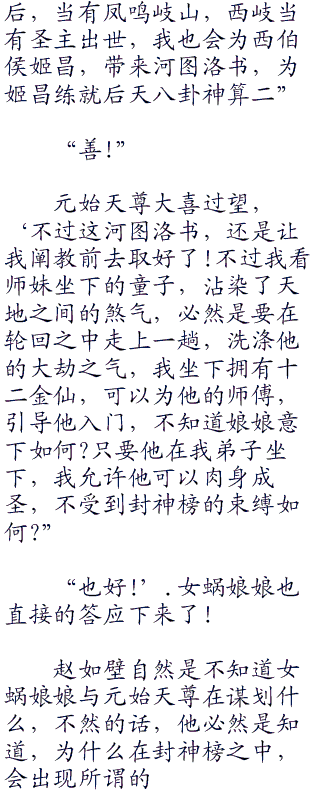 后，当有凤鸣岐山，西岐当
有圣主出世，我也会为西伯
侯姬昌，带来河图洛书，为
姬昌练就后天八卦神算二”
“善!”
元始天尊大喜过望，
‘不过这河图洛书，还是让
我阐教前去取好了!不过我看
师妹坐下的童子，沾染了天
地之间的煞气，必然是要在
轮回之中走上一趟，洗涤他
的大劫之气，我坐下拥有十
二金仙，可以为他的师傅，
引导他入门，不知道娘娘意
下如何?只要他在我弟子坐
下，我允许他可以肉身成
圣，不受到封神榜的束缚如
何?”
“也好!’.女蜗娘娘也
直接的答应下来了!
赵如壁自然是不知道女
蜗娘娘与元始天尊在谋划什
么，不然的话，他必然是知
道，为什么在封神榜之中，
会出现所谓的